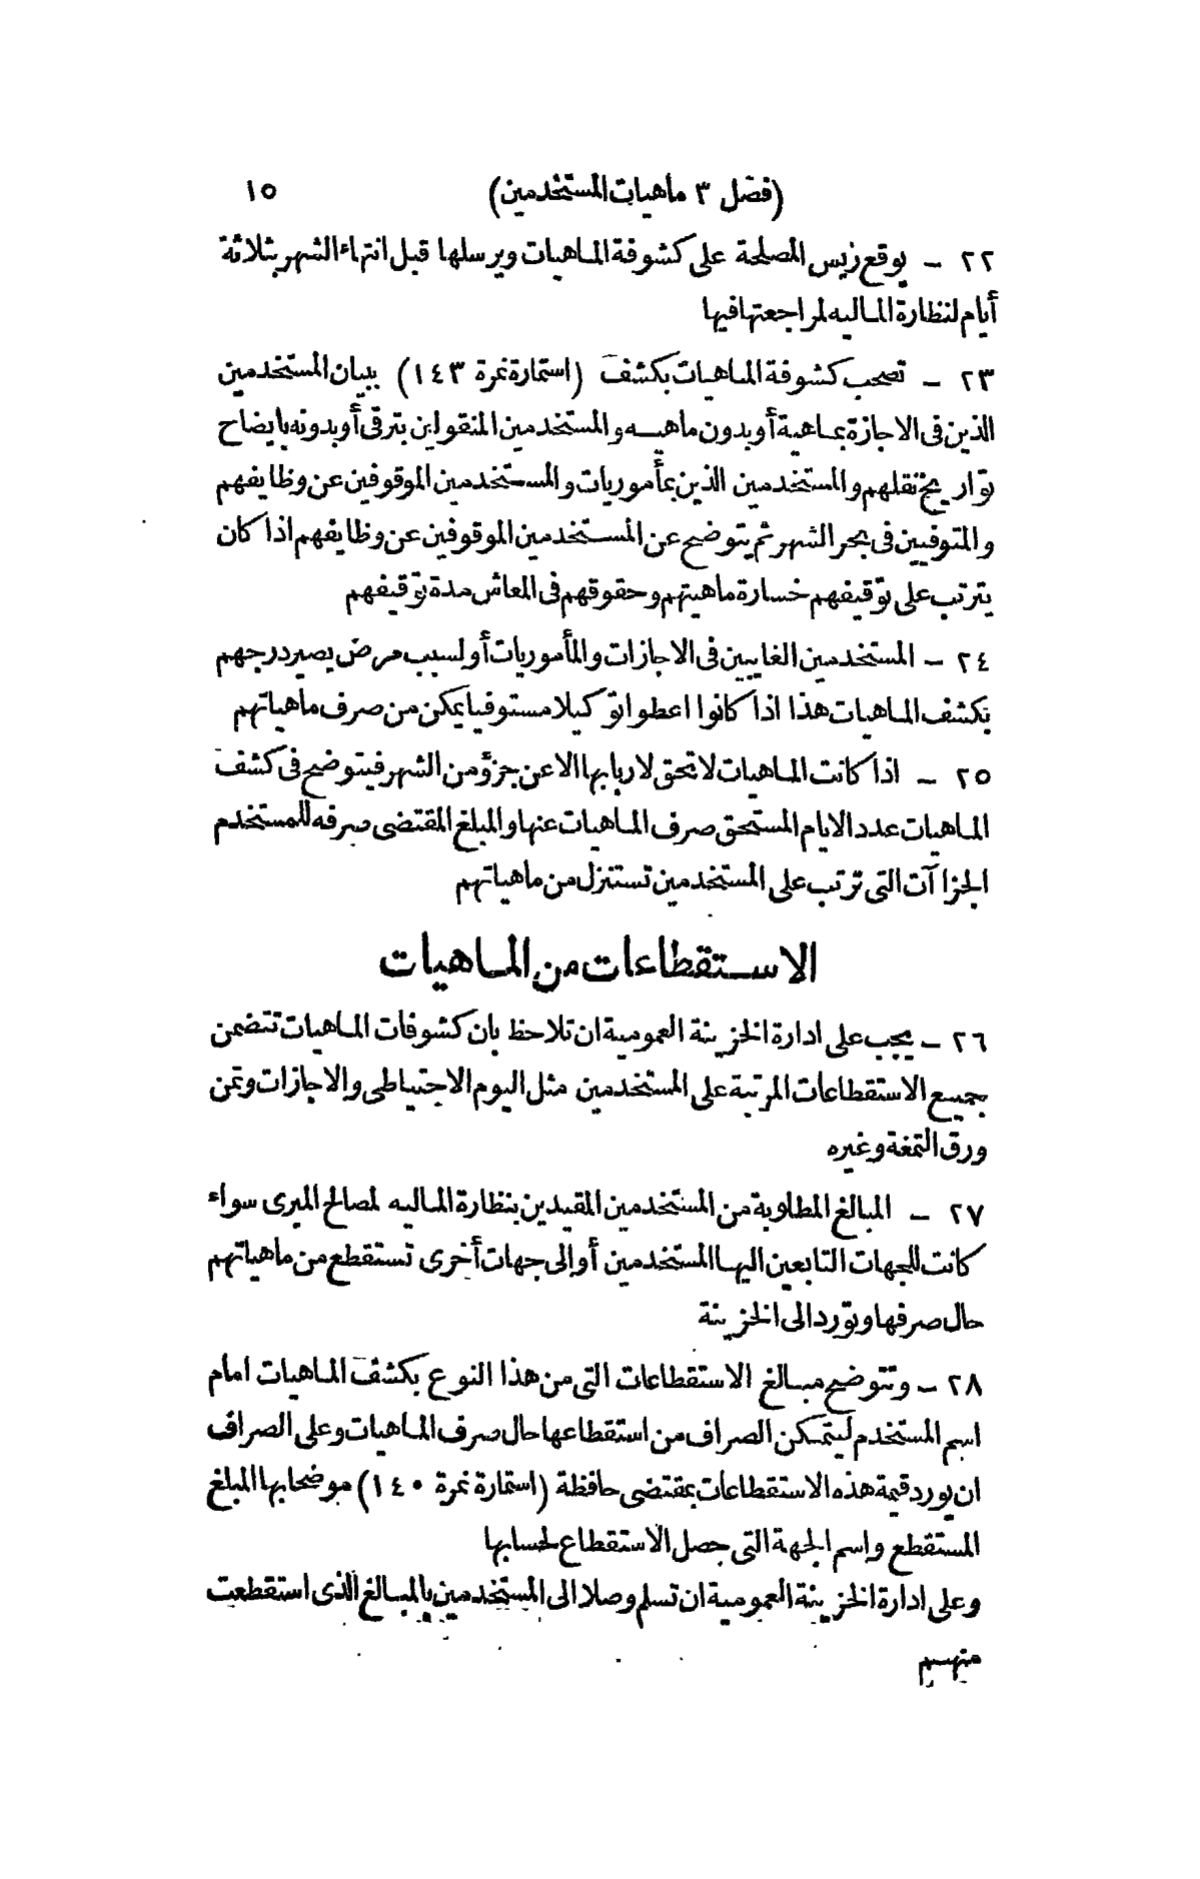 (فصل ٣ ماهيات المستخدمين) ١٥
٢٢ – يوقع رئيس المصلحة على كشوفة الماهيات ويرسلها قبل انتهاء الشهر بثلاثة
أيام لنظارة الماليه لمراجعتها فيها
٢٣ – تصحب كشوفة الماهيات بكشف (استمارة نمرة ١٤٣) ببيان المستخدمين
الذين فى الاجازة بماهية أو بدون ماهيه والمستخدمين المنقولين بترقى أو بدونه بايضاح
تواريخ نقلهم والمستخدمين الذين بمأموريات والمستخدمين الموقوفين عن وظايفهم
والمتوفيين فى بحر الشهر ثم يتوضح عن المستخدمين الموقوفين عن وظايفهم اذا كان
يترتب على توقيفهم خسارة ماهيتهم وحقوقهم فى المعاش مدة توقيفهم
٢٤ – المستخدمين الغايبين فى الاجازات والمأموريات أو لسبب مرض يصير درجهم
بكشف الماهيات هذا اذا كانوا اعطوا توكيلا مستوفيا يمكن من صرف ماهياتهم
٢٥ – اذا كانت الماهيات لا تحق لاربابها الا عن جزؤ من الشهر فيتوضح فى كشف
الماهيات عدد الايام المستحق صرف الماهيات عنها والمبلغ المقتضى صرفه للمستخدم
الجزاآت التى ترتب على المستخدمين تستنزل من ماهياتهم
الاستقطاعات من الماهيات
٢٦ – يجب على ادارة الخزينة العمومية ان تلاحظ بان كشوفات الماهيات تتضمن
جميع الاستقطاعات المرتبة على المستخدمين مثل اليوم الاحتياطى والاجازات وثمن
ورق التمغة وغيره
٢٧ – المبالغ المطلوبة من المستخدمين المقيدين بنظارة الماليه لمصالح الميرى سواء
كانت للجهات التابعين اليها المستخدمين أو الى جهات أخرى تستقطع من ماهياتهم
حال صرفها وتورد الى الخزينة
٢٨ – وتتوضح مبالغ الاستقطاعات التى من هذا النوع بكشف الماهيات امام
اسم المستخدم ليتمكن الصراف من استقطاعها حال صرف الماهيات وعلى الصراف
ان يورد قيمة هذه الاستقطاعات بمقتضى حافظة (استمارة نمرة ١٤٠) موضحا بها المبلغ
المستقطع واسم الجهة التى حصل الاستقطاع لحسابها
وعلى ادارة الخزينة العمومية ان تسلم وصلا الى المستخدمين بالمبالغ الذى استقطعت
منهم